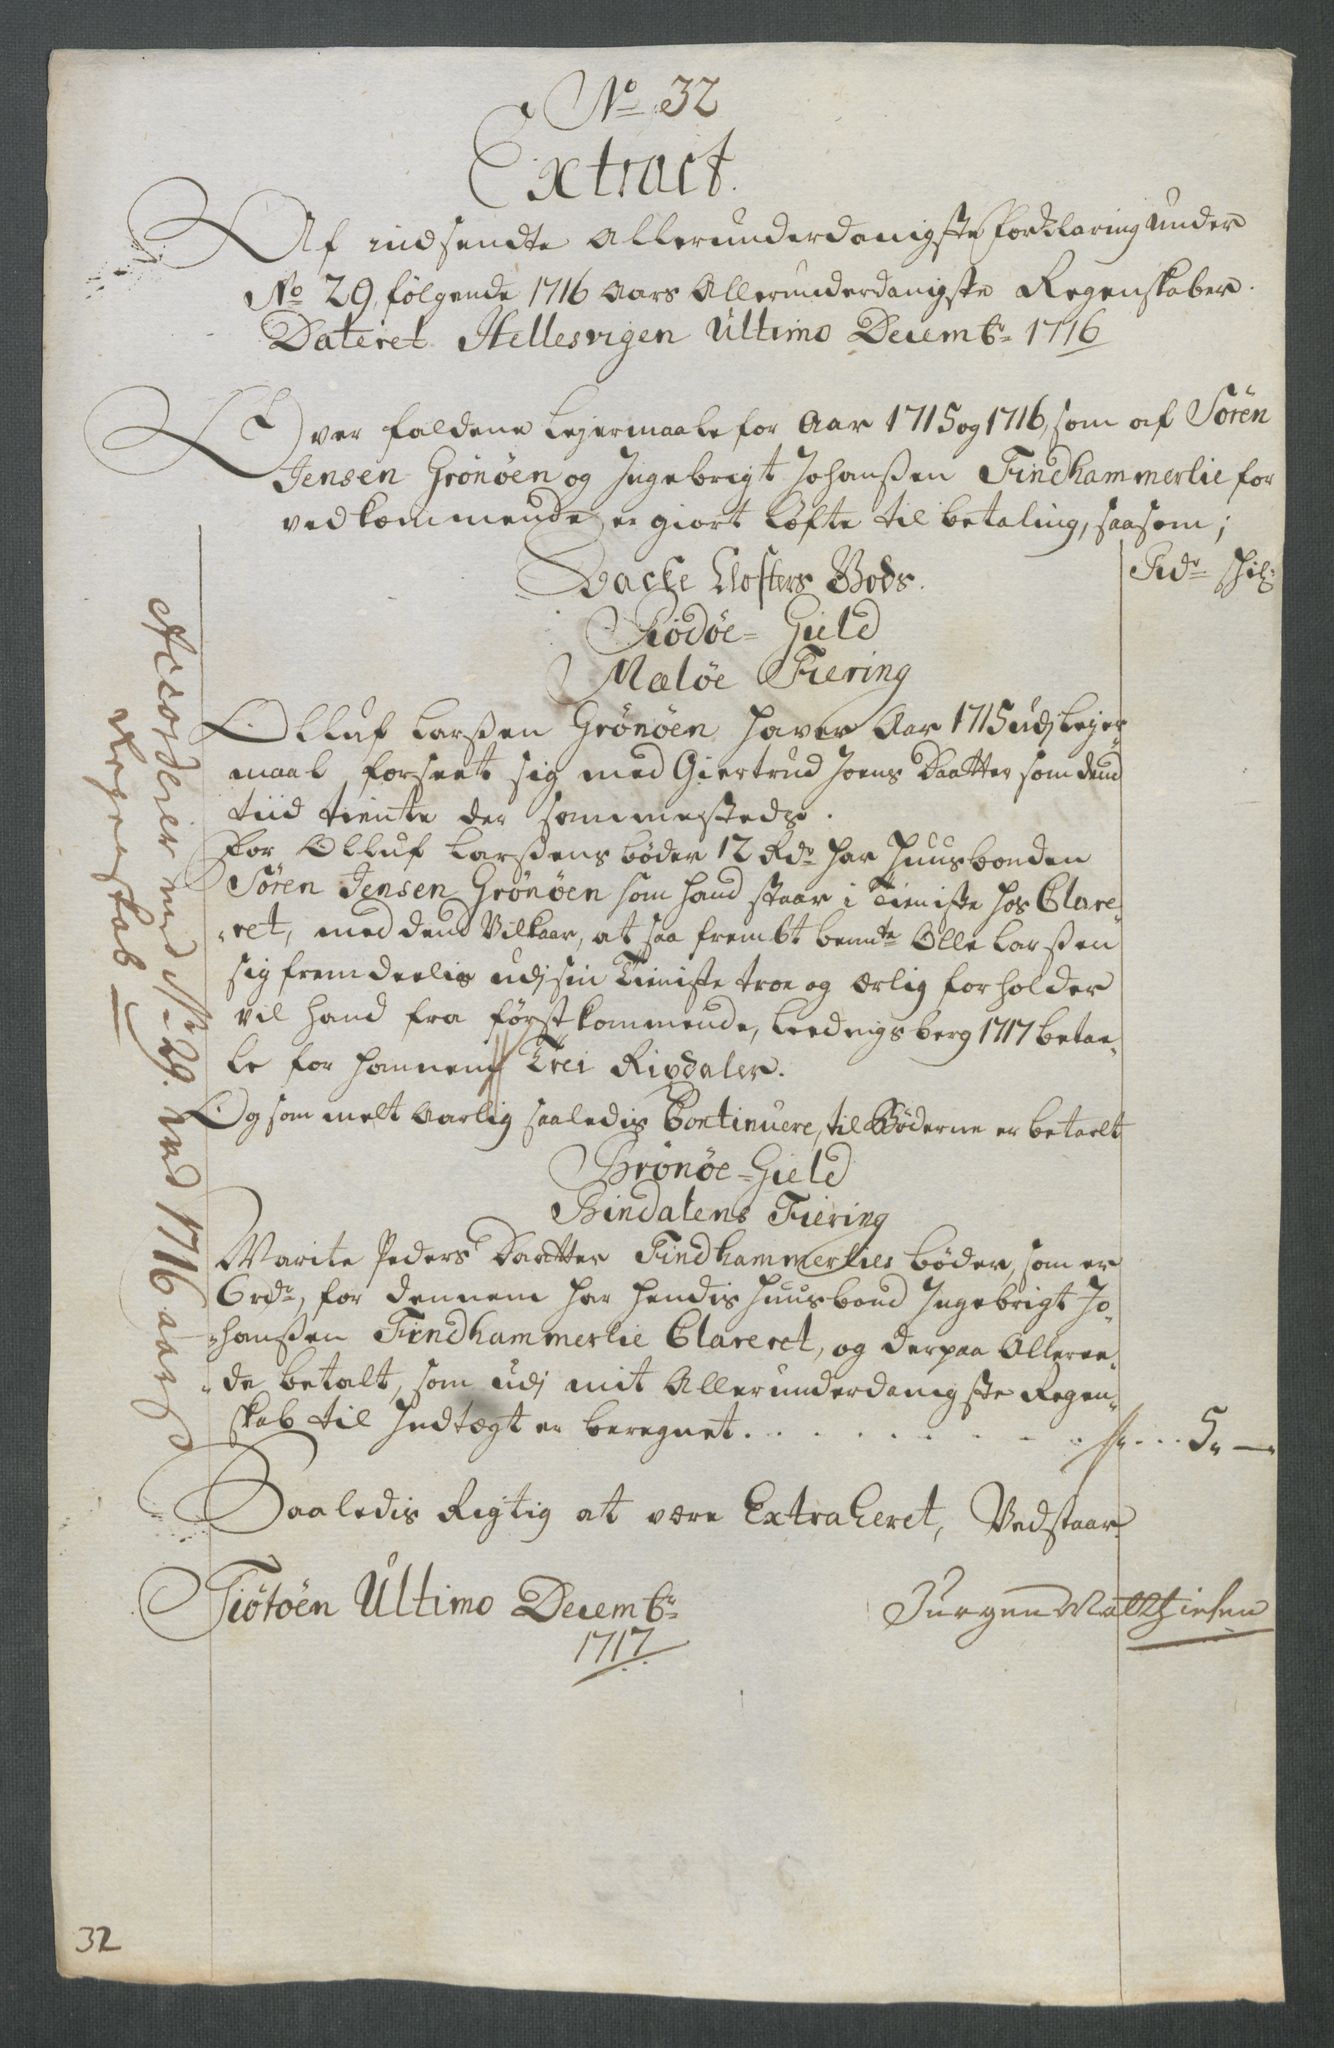 No 32
Extract.
Af indsendte Allerunderdanigste forklaring under
No 29, følgende 1716 Aars Allerunderdanigste Regenskaber.
Dateret Hellesvigen Ultimo Decembr 1716
Over faldene Lejermaale for Aar 1715 og 1716, som af Søren
Jensen Grönöen og Ingebrigt Johanßen Findhammerlie for
vedkommende er giort Løfte til betaling, saasom;
Rdr Skil:
Backe Closters Gods.
Rödöe Gield
Meløe Fiering
Olluf Larßen Grönöen haver Aar 1715 udj Lejer
maal forseet sig med Giertrud Joens Daatter som dend
tiid tiente der sammesteds.
For Olluf Larßens bøder 12 Rdr har Huusbonden
Sören Jensen Grönöen som hand staar i Tieniste hos Clare„
„ret, med dend Vilkaar, at saa frembt bemte Olle Larßen
sig fremdeelis udj sin Tieniste troe og ærlig forholder
vil hand fra førstkommende, Leedings berg 1717 betaa„
le for hannem Trei Rixdaler.
Og som melt Aarlig saaledis Continuere, til Bøderne er betalt
Brönöe Gield
Bindalens Fiering
Marite Peders Daatter Findhammerlies bøder, som er
6 rdr, for dennem har hendis Huusbond Ingebrigt Jo„
„hanßen Findhammerlie Clareret, og derpaa Alleree„
„de betalt, som udj mit Allerunderdanigste Regen„
skab til Indtægt er beregnet. . . . . . . . . . 5„ —„
Saaledis Rigtig at være Extraheret, Vedstaar
Tiötöen Ultimo Decembr
1717
Jurgen Matthiesen
Accorderer med No 29. ved 1716 aars
Regenskab
32